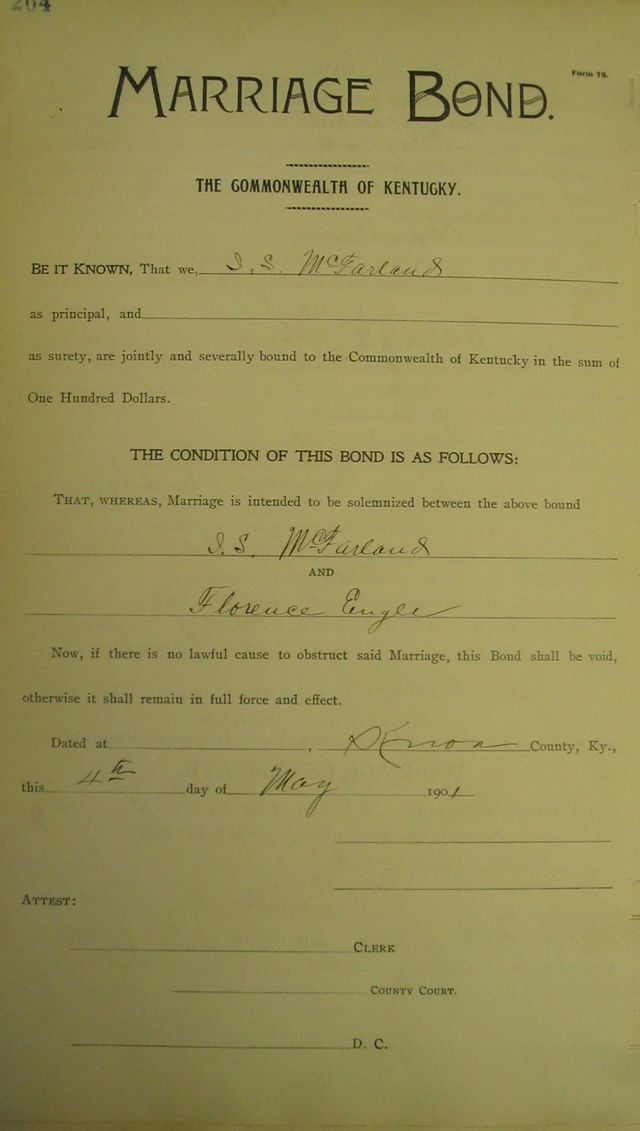 204
Form 78.
MARRIAGE BOND.
THE COMMONWEALTH OF KENTUCKY.
BE IT KNOWN, That we, I. S. McFarland
as principal, and
as surety, are jointly and severally bound to the Commonwealth of Kentucky in the sum of
One Hundred Dollars.
THE CONDITION OF THIS BOND IS AS FOLLOWS:
THAT, WHEREAS, Marriage is intended to be solemnized between the above bound
I. S. McFarland
AND
Florence Engle
Now, if there is no lawful cause to obstruct said Marriage, this Bond shall be void,
otherwise it shall remain in full force and effect.
Dated at , Knox County, Ky.,
this 4th day of May 1901
ATTEST:
CLERK
COUNTY COURT.
D. C.